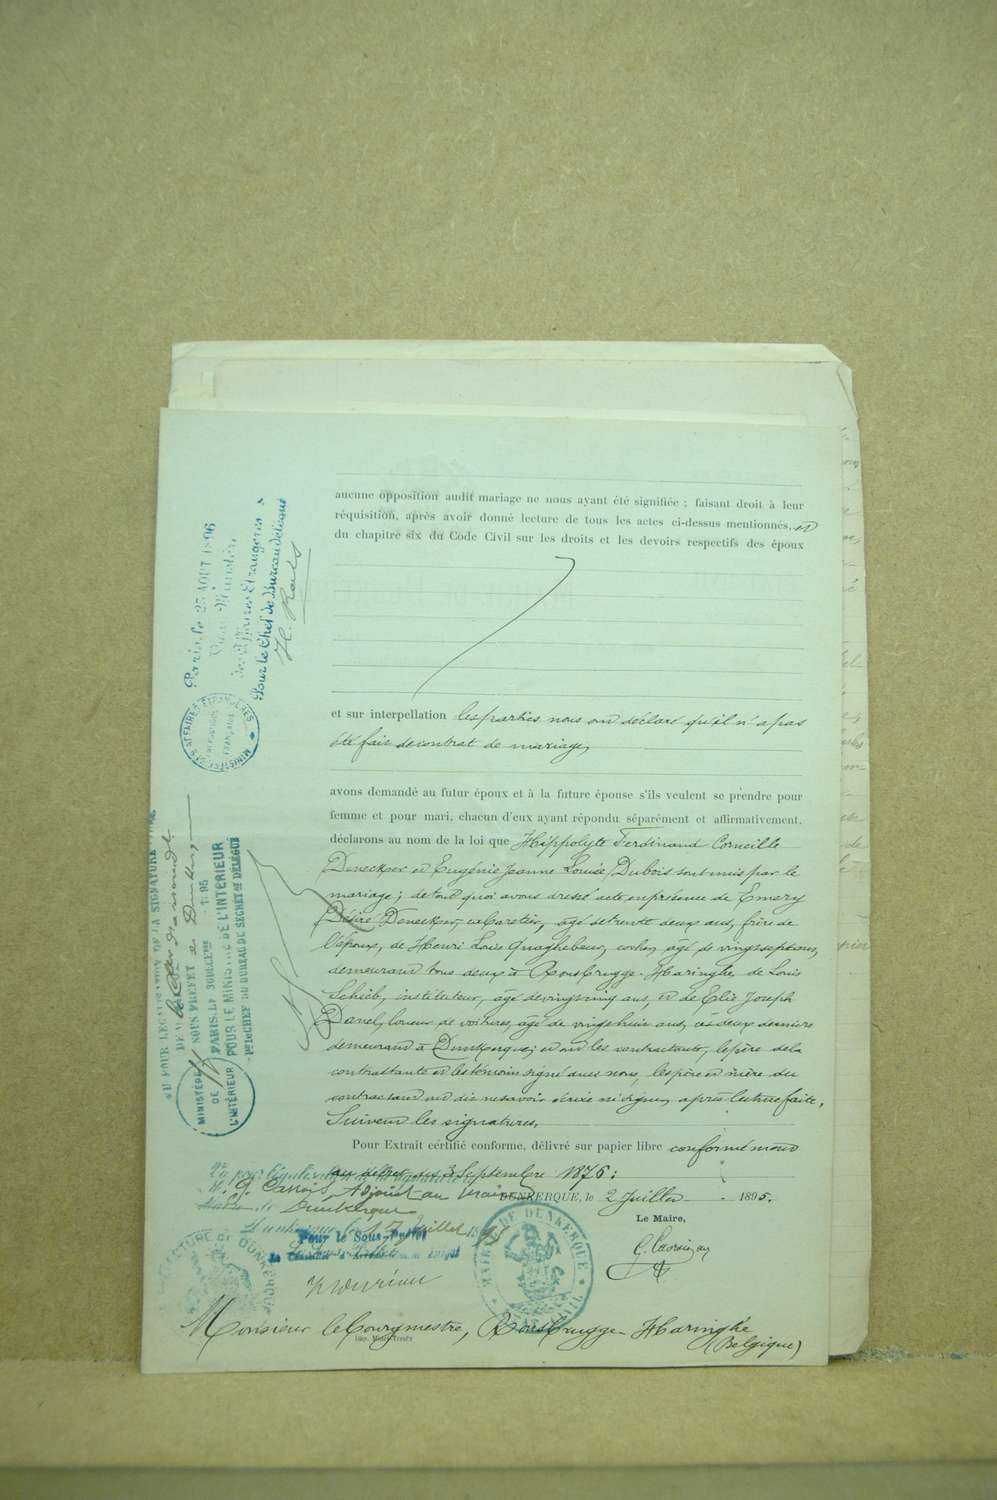 aucune opposition audit mariage ne nous ayant été signifiée ; faisant droit à leur
réquisition, après avoir donné lecture de tous les actes ci-dessus mentionnés, et
du chapitre six du Code Civil sur les droits et les devoirs respectifs des époux
et sur interpellation les parties nous ont déclaré qu'il n'a pas
été fait de contrat de mariage,
avons demandé au futur époux et à la future épouse s'ils veulent se prendre pour
femme et pour mari, chacun d'eux ayant répondu séparément et affirmativement,
déclarons au nom de la loi que Hippolyte Ferdinand Corneille
Deneckser et Eugénie Jeanne Louise Dubois sont unis par le
mariage ; de tout quoi avons dressé acte en présence de Emery
Désiré Deneckser, cabaretier, âgé de trente deux ans, frère de
l'époux, de Henri Louis Quaghebeur, cocher, âgé de vingt sept ans,
demeurant tous deux à Rousbrugge-Haringhe de Louis
Schieb, instituteur, âgé de vingt cinq ans, et de Elie Joseph
Danel, loueur de voitures, âgé de vingt huit ans, ces deux derniers
demeurant à Dunkerque ; et ont les contractants, le père de la
contractante et les témoins signé avec nous, les père et mère du
contractant ont dit ne savoir écrire ni signer, après lecture faite.
Suivent les signatures.
Pour Extrait certifié conforme, délivré sur papier libre conformément
au décret du 3 Septembre 1876 :
DUNKERQUE, le 2 Juillet 1895.
Le Maire,
Vu pour légalisation de la signature
M. G. Adjoint au Maire
de Dunkerque
Dunkerque le 17 Juillet 1895
Pour le Sous-Préfet
MAIRIE DE DUNKERQUE
ÉTAT CIVIL
Monsieur le Bourgmestre, Rousbrugge-Haringhe
(Belgique)
Paris, le 23 AOUT 1896
Pour le Ministre
des Affaires Etrangères
Pour le Chef de Bureau délégué
MINISTÈRE DES AFFAIRES ÉTRANGÈRES
RÉPUBLIQUE FRANÇAISE
VU POUR LÉGALISATION DE LA SIGNATURE
DE M.
SOUS PREFET de Dunkerque
PARIS, LE
POUR LE MINISTRE DE L'INTÉRIEUR
LE CHEF DU BUREAU DU SECRÉT.at DÉLÉGUÉ
MINISTÈRE
DE
L'INTÉRIEUR